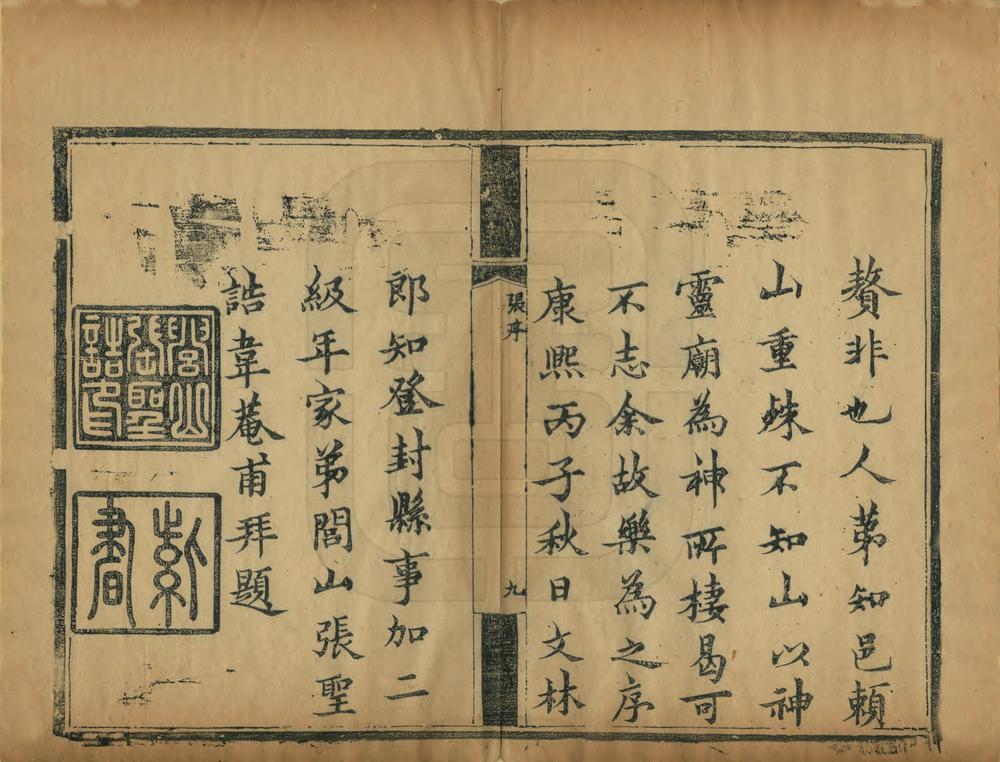 贅非也人第知邑賴
山重殊不知山以神
靈廟為神所棲曷可
不志余故樂為之序
康熙丙子秋日文林
張序
九
郎知登封縣事加二
級年家弟閭山張聖
誥韋菴甫拜題
閭山張聖誥印